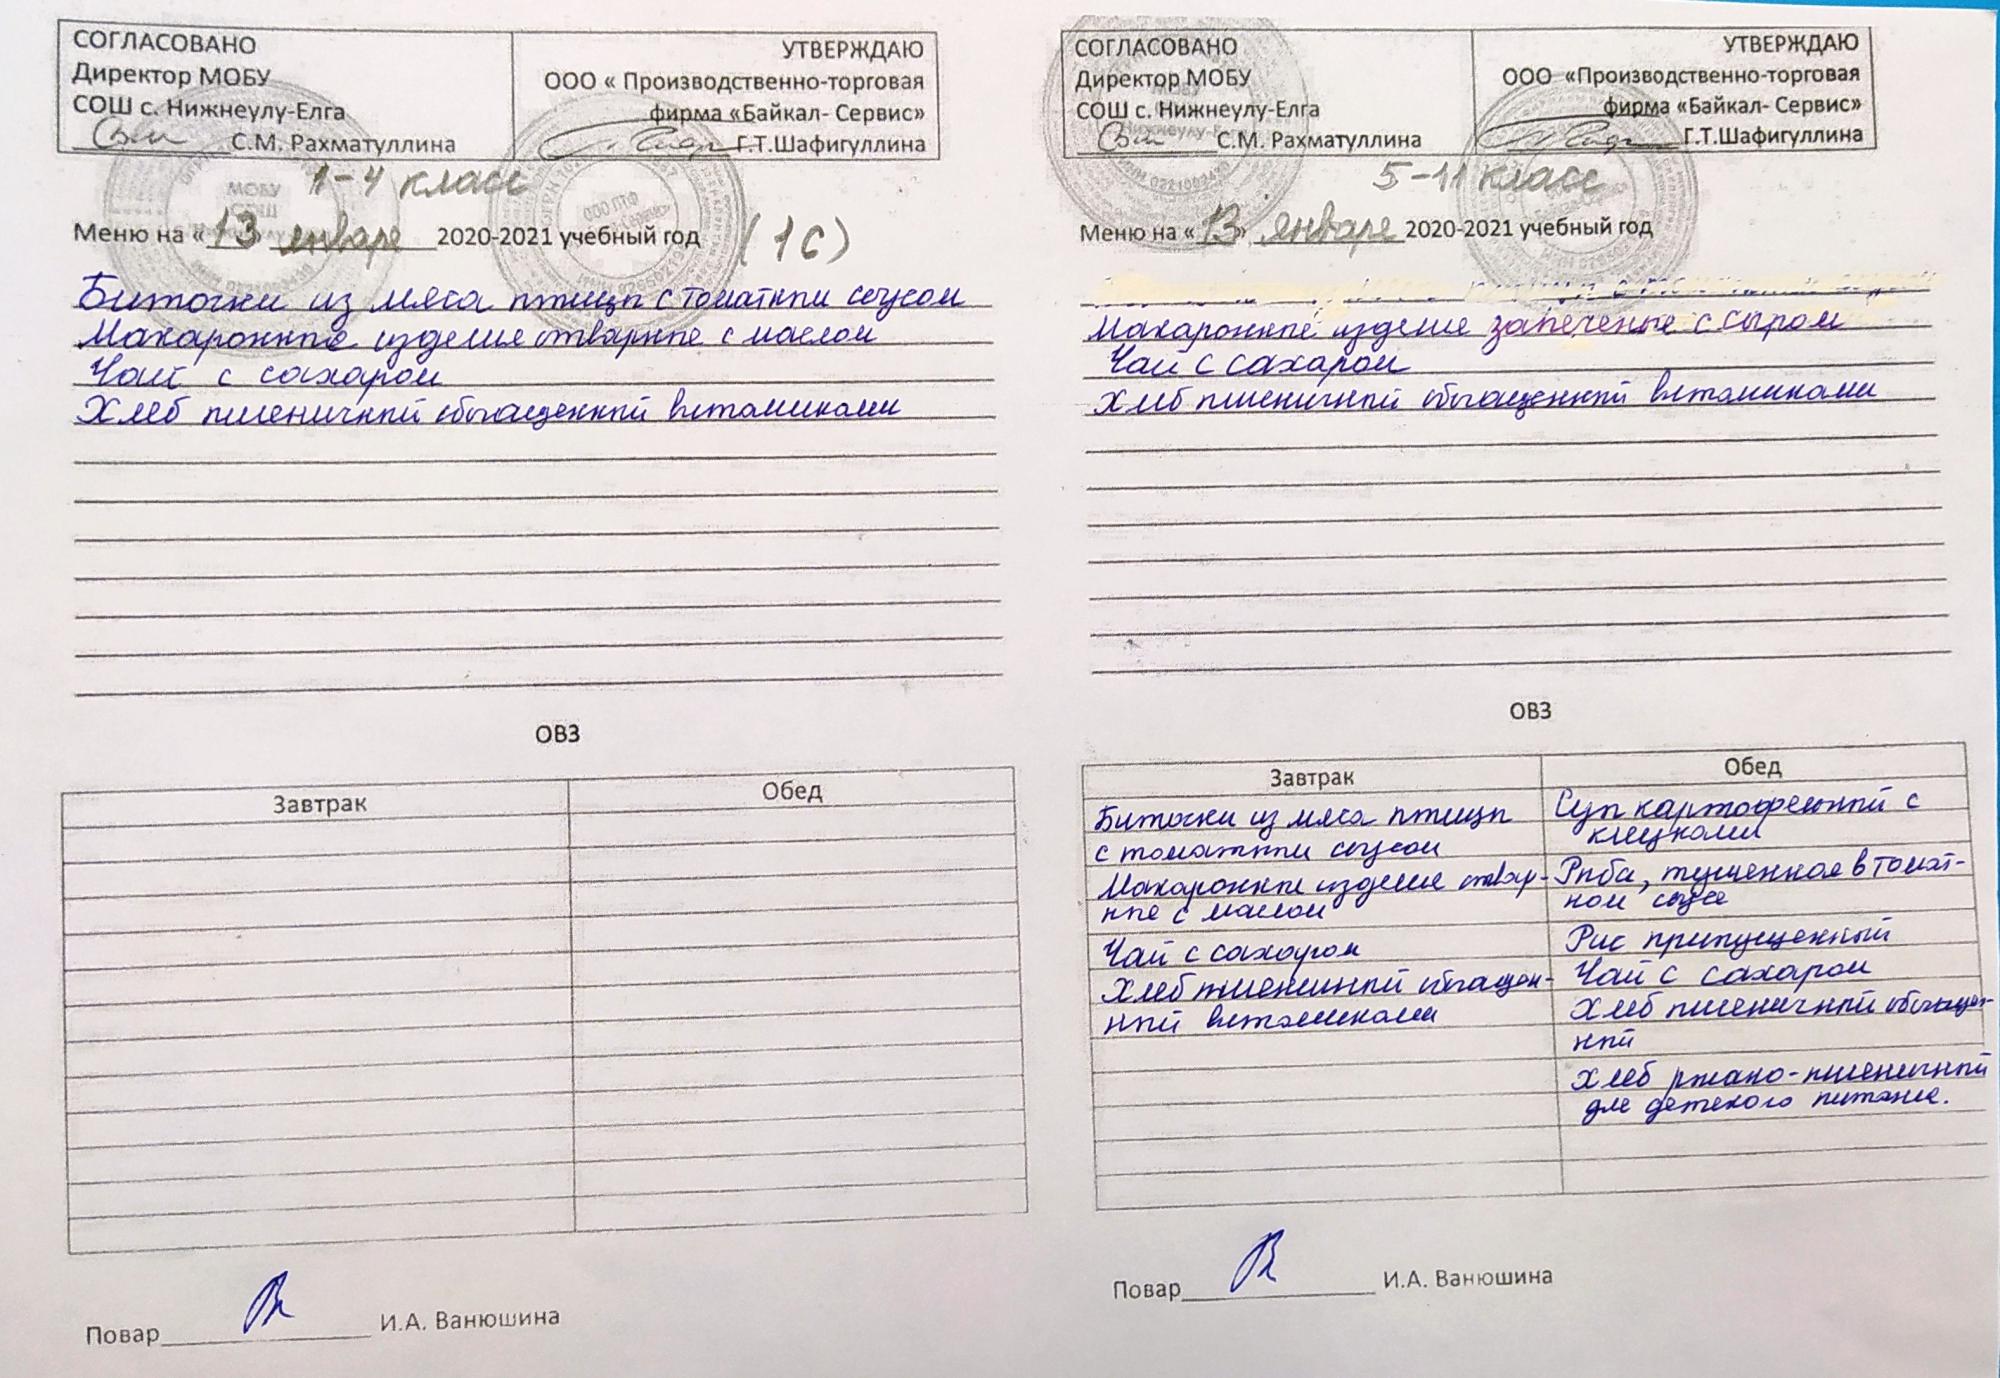 СОГЛАСОВАНО
Директор МОБУ
СОШ с. Нижнеулу-Елга
С.М. Рахматуллина
УТВЕРЖДАЮ
ООО « Производственно-торговая
фирма «Байкал- Сервис»
Г.Т.Шафигуллина
1-4 класс
Меню на «13» января 2020-2021 учебный год (1С)
Биточки из мяса птицы с томатным соусом
Макаронные изделия отварные с маслом
Чай с сахаром
Хлеб пшеничный обогащенный витаминами
ОВЗ
Завтрак Обед
Повар И.А. Ванюшина
СОГЛАСОВАНО
Директор МОБУ
СОШ с. Нижнеулу-Елга
С.М. Рахматуллина
УТВЕРЖДАЮ
ООО «Производственно-торговая
фирма «Байкал- Сервис»
Г.Т.Шафигуллина
5-11 класс
Меню на «13» января 2020-2021 учебный год
Макаронные изделие запеченые с сыром
Чай с сахаром
Хлеб пшеничный обогащенный витаминами
ОВЗ
Завтрак
Биточки из мяса птицы
с томатным соусом
Макаронные изделие отвар-
ные с маслом
Чай с сахаром
Хлеб пшеничный обогащен-
ный витаминами
Обед
Суп картофельный с
клецками
Рыба, тушенная в томат-
ном соусе
Рис припущенный
Чай с сахаром
Хлеб пшеничный обогащен-
ный
Хлеб ржано-пшеничный
для детского питания.
Повар И.А. Ванюшина